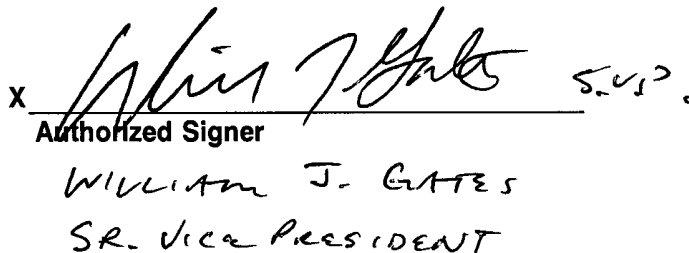 X William J Gates S.V.P.
Authorized Signer
WILLIAM J. GATES
SR. VICE PRESIDENT